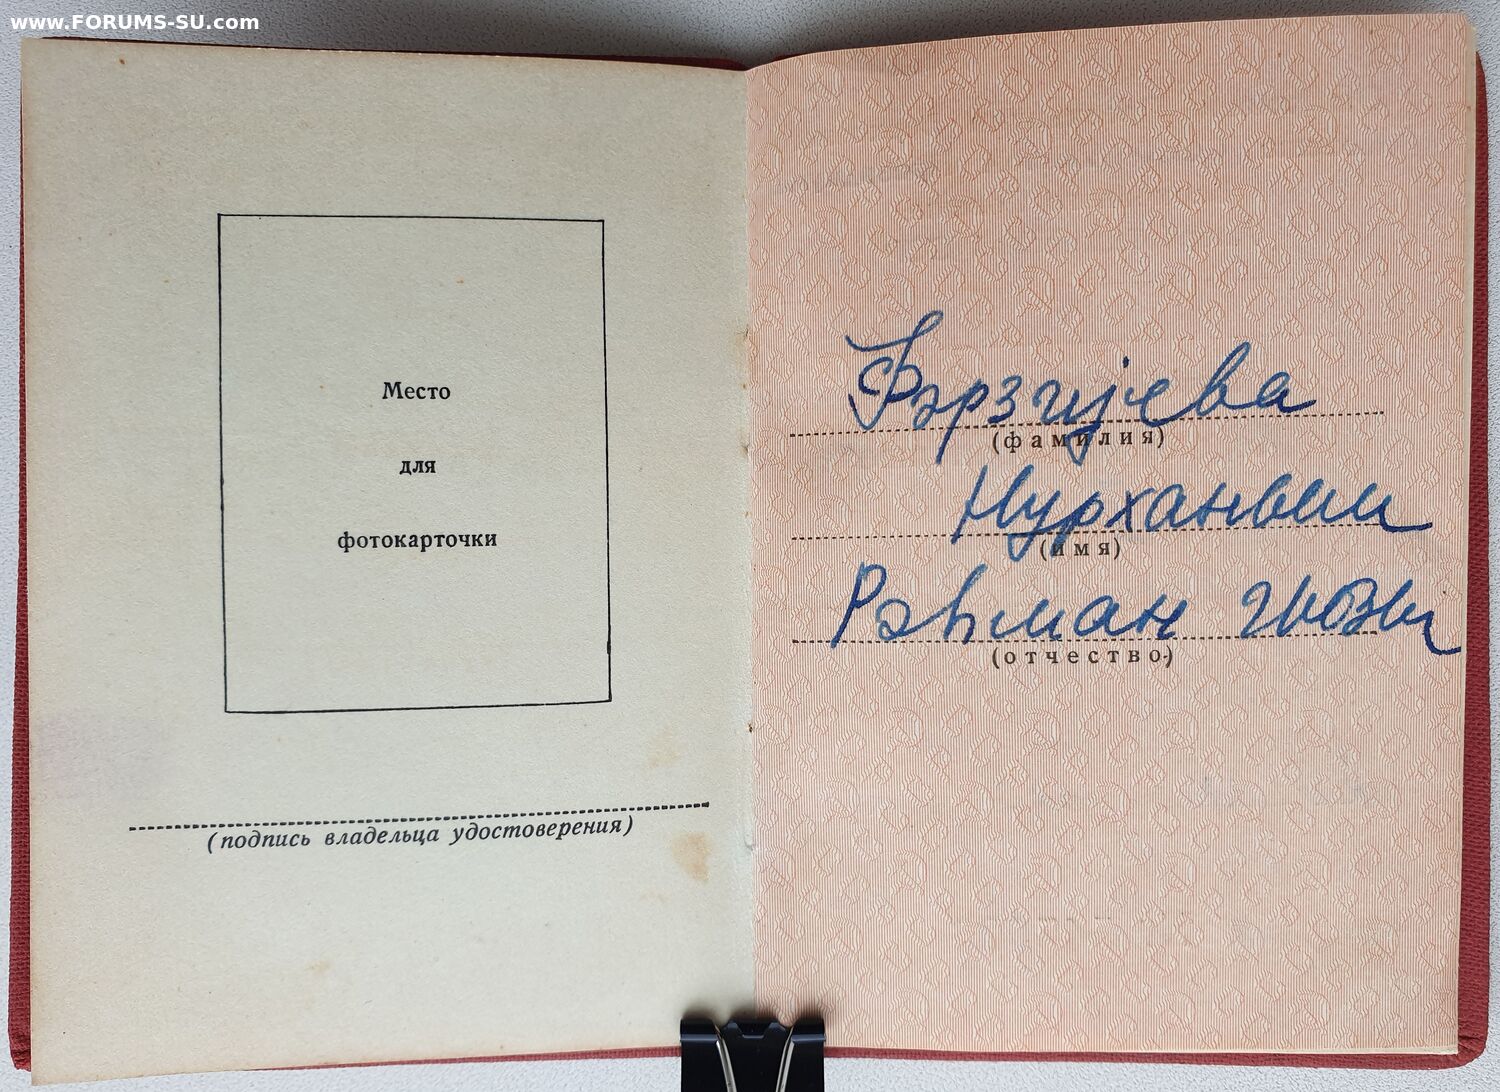 www.FORUMS-SU.com
Место
для
фотокарточки
(подпись владельца удостоверения)
Фәрзијева
(фамилия)
Нурханым
(имя)
Рәһман гызы
(отчество)